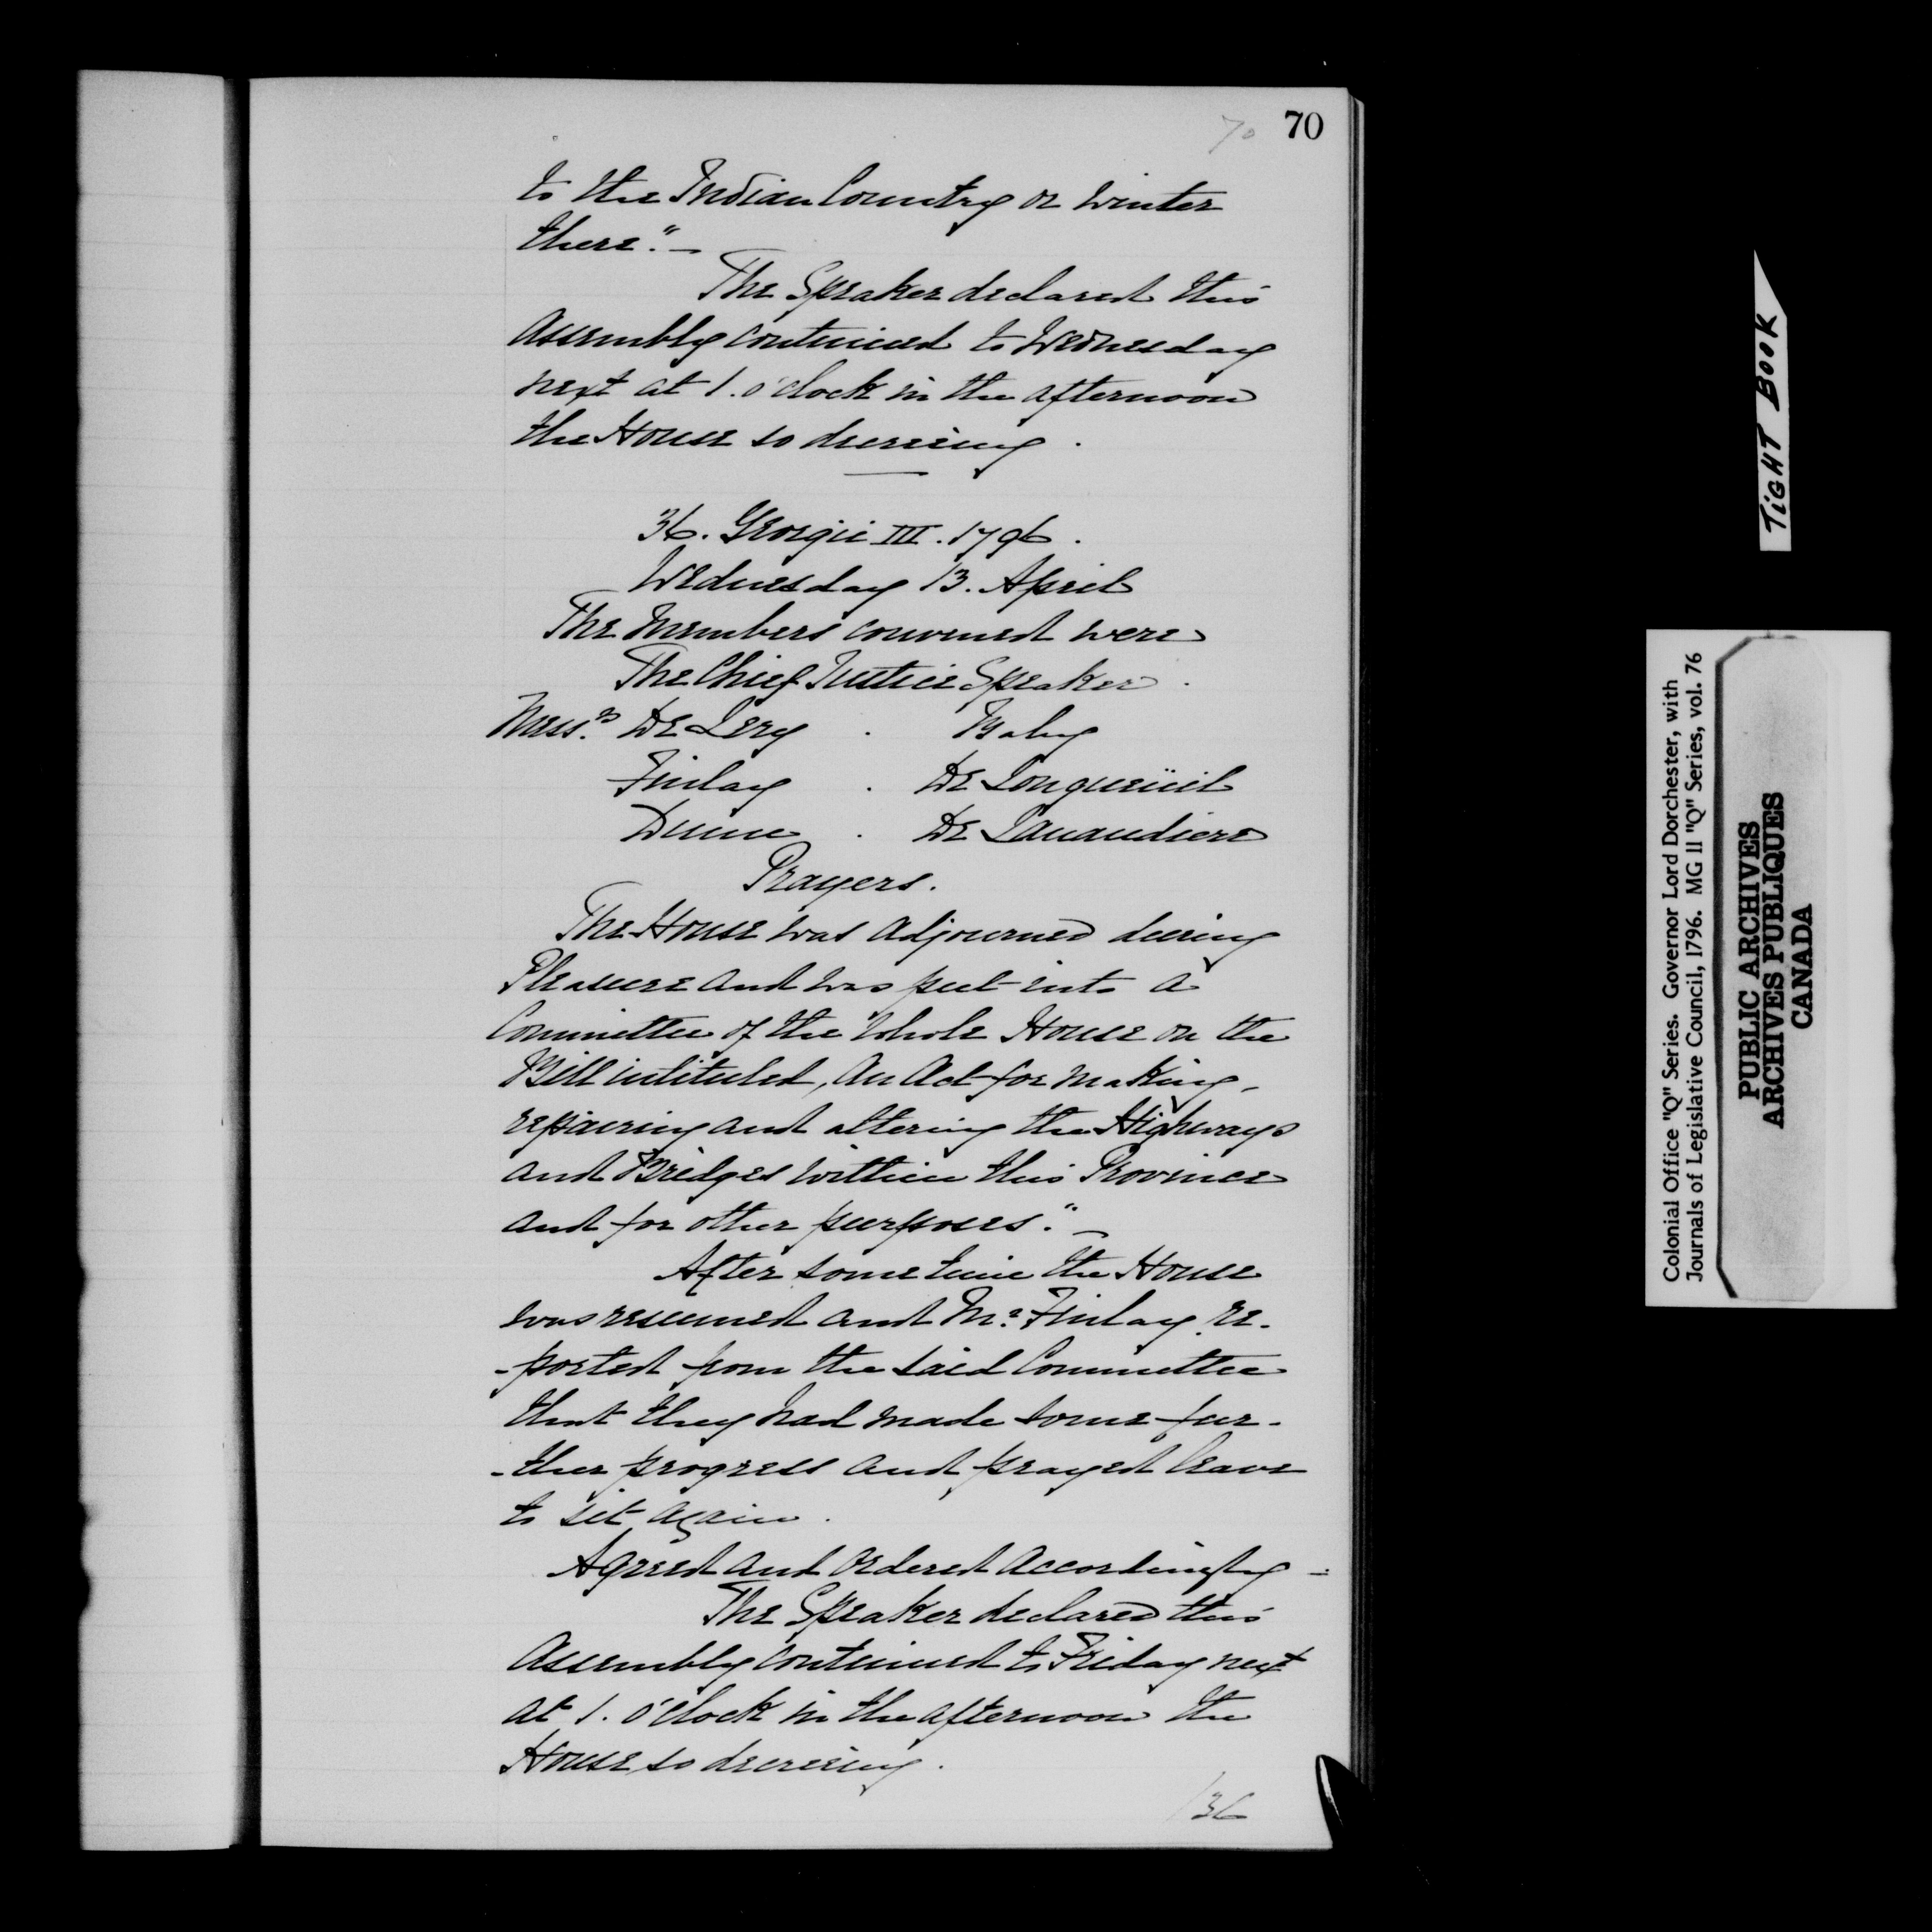 70 70
to the Indian Country or winter
there."—
The Speaker declared this
Assembly continued to Wednesday
next at 1. o'clock in the afternoon
the House so decreeing.
36. Georgii III. 1796.
Wednesday 13. April
The Members convened were
The Chief Justice Speaker.
Mess.rs De Lery . Baby
Finlay . De Longueüil
Dunn . De Lanaudiere
Prayers.
The House was adjourned during
Pleasure and was put into a
Committee of the whole House on the
Bill intituled, An Act for making,
repairing and altering the Highways
and Bridges within this Province
and for other purposes."—
After some time the House
was resumed and Mr. Finlay re-
-ported from the said Committee
that they had made some fur-
-ther progress and prayed leave
to sit again.
Agreed and ordered accordingly—
The Speaker declared this
Assembly continued to Friday next
at 1. o'clock in the afternoon the
House so decreeing.
/36
TIGHT BOOK
Colonial Office "Q" Series. Governor Lord Dorchester, with
Journals of Legislative Council, 1796. MG 11 "Q" Series, vol. 76
PUBLIC ARCHIVES
ARCHIVES PUBLIQUES
CANADA